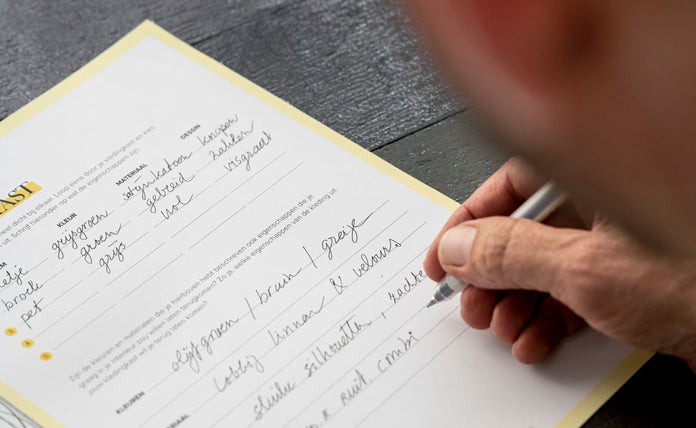 AST
eel dicht bij elkaar. Loop eens door je kledingkast en kies
uit. Schrijf hieronder op wat de eigenschappen zijn.
KLEUR MATERIAAL DESSIN
grijsgroen satijnkatoen knopen
broek groen gebreid zakken
pet grijs wol visgraat
3
4
5
Zijn de kleuren en materialen die je hierboven hebt beschreven ook eigenschappen die je
graag in je interieur zou willen laten terugkomen? Zo ja, welke eigenschappen van de kleding uit
jouw kledingkast wil je terug laten komen?
KLEUREN olijfgroen / bruin / greije
linnen & velours
silhouetten, zachte
ruit combi